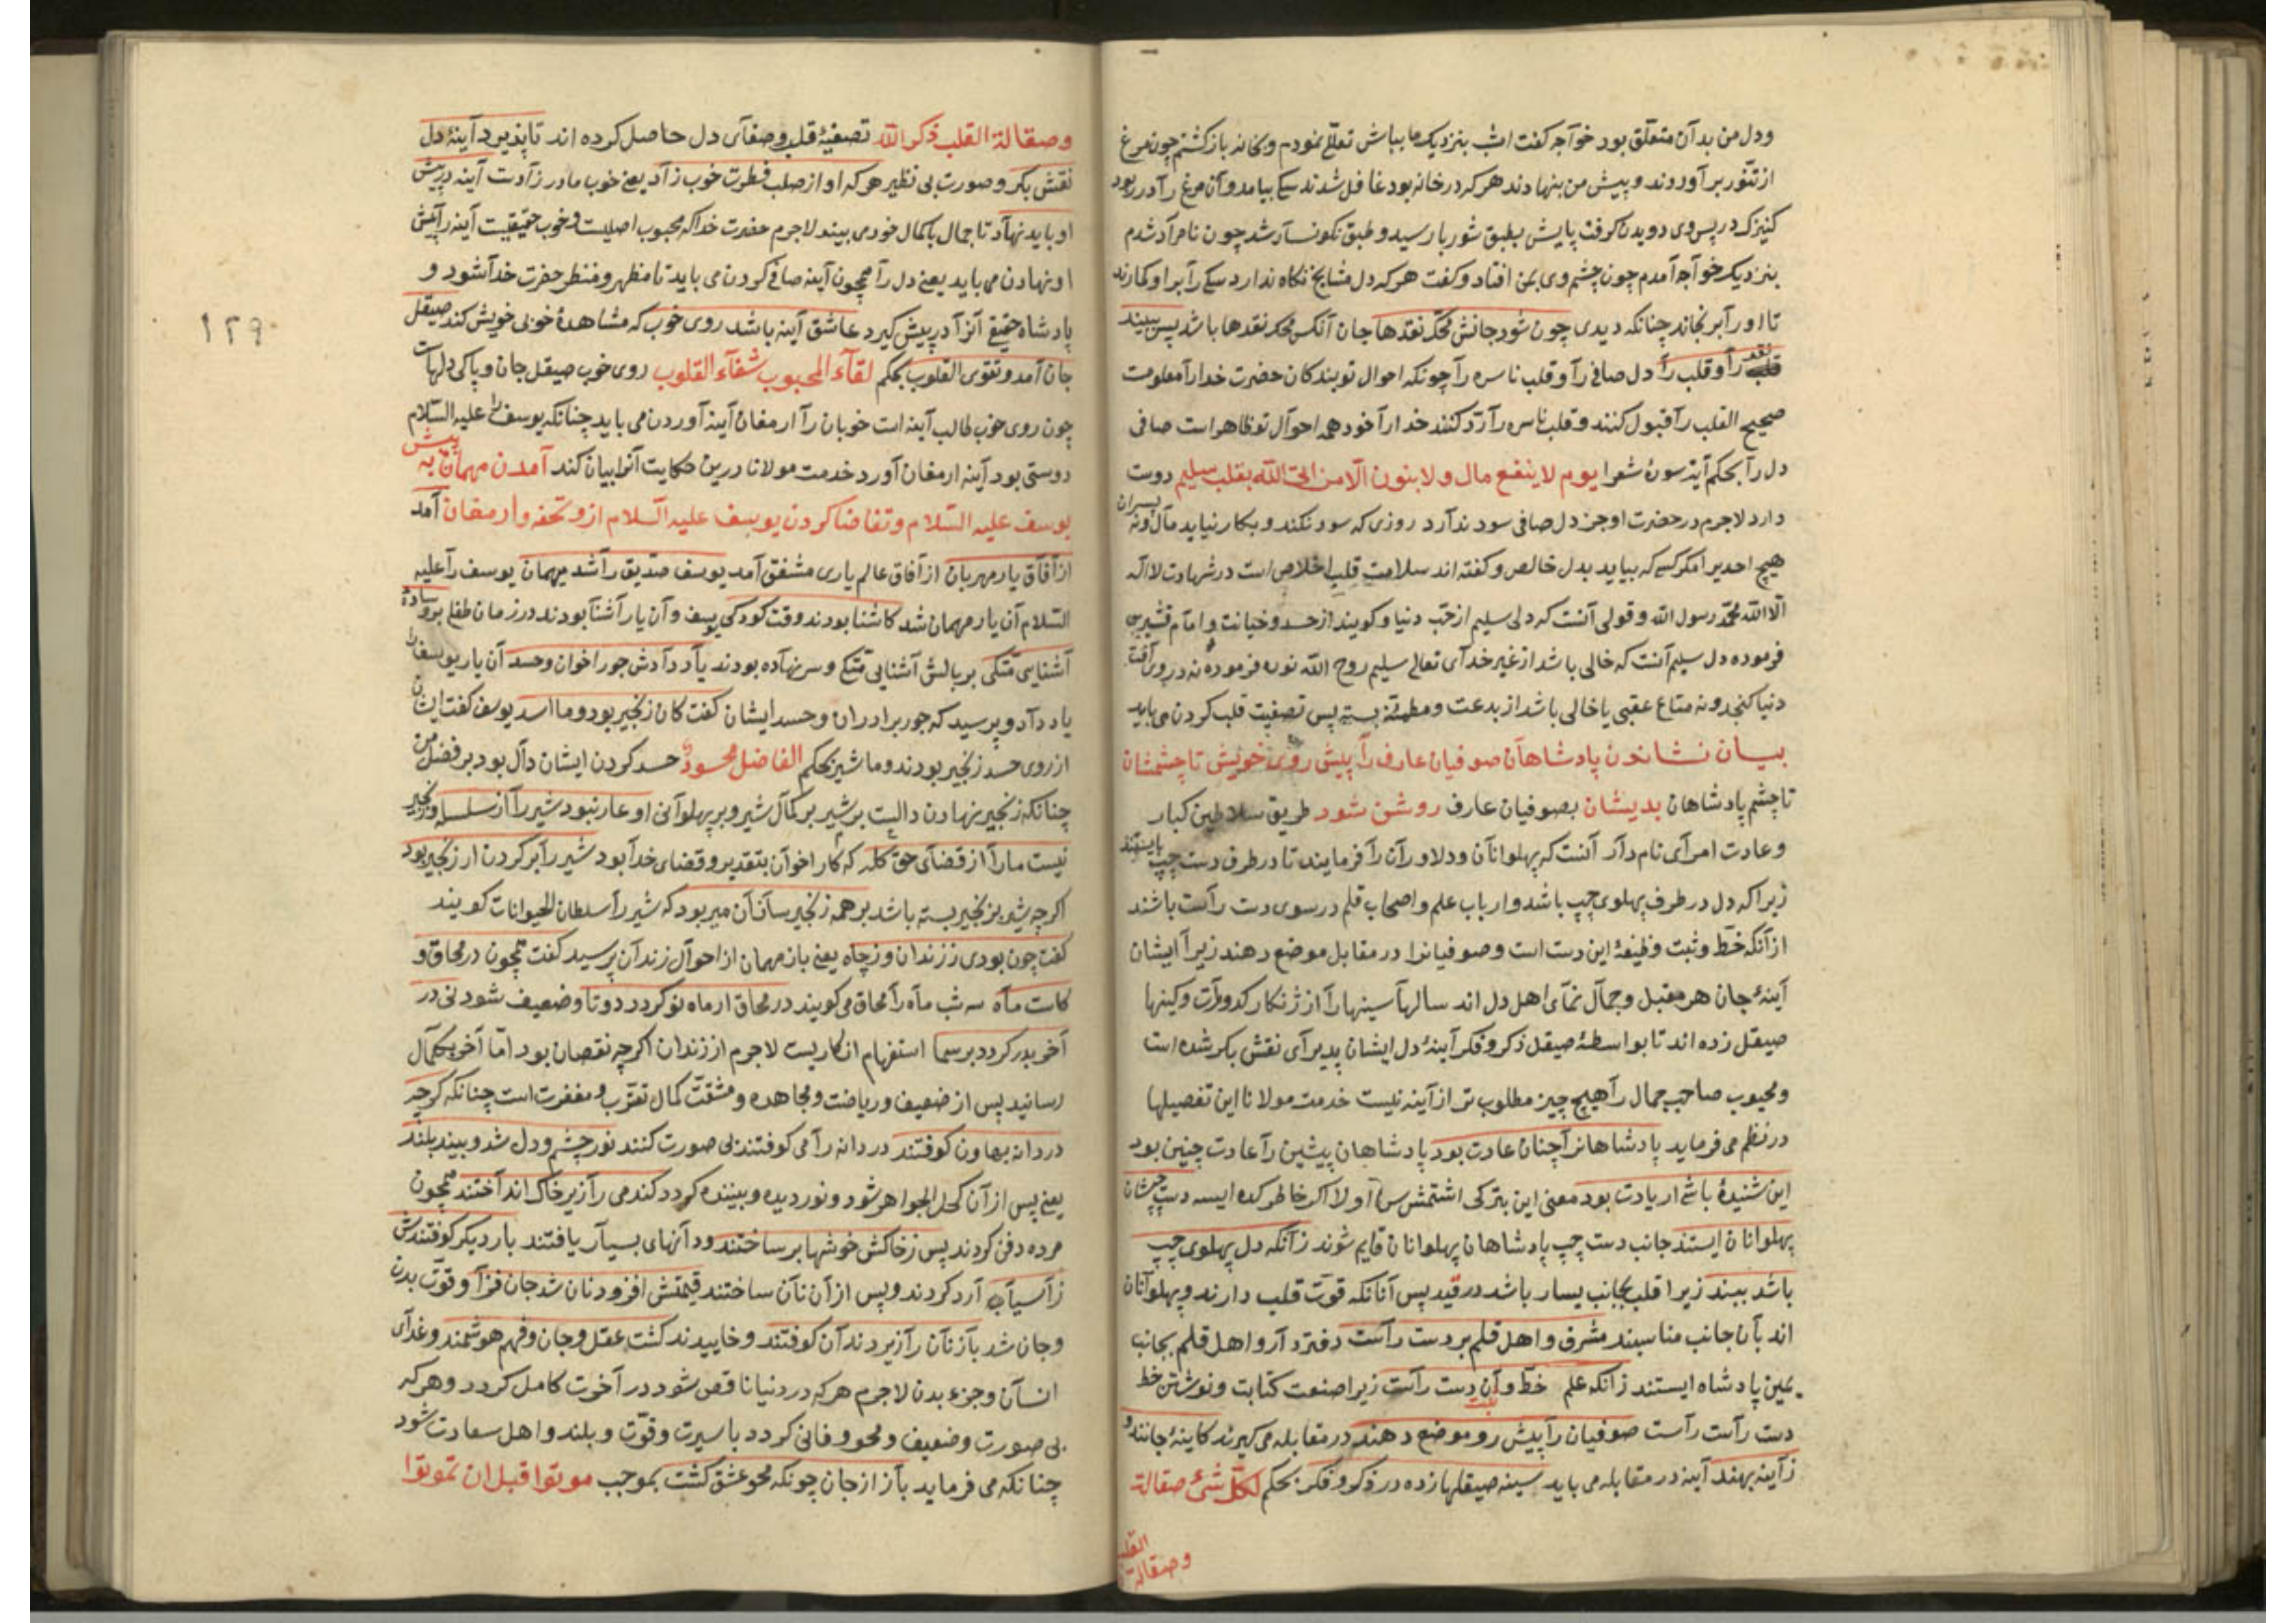 ودل من بدآن متعلّق بود خوآجه کفت امشب بنزدیک ما بباش تعلّل نمودم وبخانه بازکشتم چون مرغ
از تنّور برآوردند وپیش من بنهادند هرکه در خانه بود غافل شدند سکی بیامد وآن مرغ رآ در ربود
کنیزک در پس وی دویدن کرفت پایش بطبق شوربا رسید وطبق نکونسآر شد چون نامرآد شدم
بنزدیک خوآجه آمدم چون چشم وی بمن افتاد وکفت هرکه دل مشایخ نکاه ندارد سکی رآ برآو کمارند
تا اورآ برنجاند چنانکه دیدی چون شود جانش محکّ نقدها جان آنکس محک نقدها باشد پس ببیند
نقد رآ وقلب رآ دل صافی رآ وقلب ناسره رآ چونکه احوال تو بندکان حضرت خدارآ معلومست
صحیح القلب رآ قبول کنند وقلب ناسره رآ ردّ کنند خدارآ خود همه احوآل تو ظاهر است صافی
دل رآ بحکم آیة سورۀ شعرا یوم لا ینفع مال ولا بنون الّا من اتی الله بقلب سلیم دوست
دارد لاجرم در حضرت او جز دل صافی سود ندآرد روزی که سود نکند وبکار نیاید مآل ونه پسران
هیچ احدیرا مکر کسی که بیاید بدل خالص وکفته اند سلامت قلب اخلاص است در شهادت لا اله
الّا الله محمّد رسول الله وقولی آنست که دلی سلیم از حبّ دنیا وکویند از حسد وخیانت وامآم قشیری
فرموده دل سلیم آنست که خالی باشد از غیر خدآی تعالی سلیم روح الله نوره فرموده نه در روی آفت
دنیا کنجد ونه متاع عقبی یا خالی باشد از بدعت ومطمئنّه بسته پس تصفیت قلب کردن می باید
بیان نشاندن پادشاهآن صوفیان عارف رآ پیش روی خویش تا چشمشان
تا چشم پادشاهان بدیشان بصوفیان عارف روشن شود طریق سلاطین کبار
وعادت امرآی نام دآر آنست که پهلوانآن ودلاورآن رآ فرمایند تا در طرف دست چپ بایستند
زیرا که دل در طرف پهلوی چپ باشد وارباب علم واصحاب قلم در سوی دست رآست باشند
از آنکه خطّ وثبت وظیفۀ این دست است وصوفیانرا در مقابل موضع دهند زیرآ ایشان
آینۀ جان هر مقبل وجمآل نمآی اهل دل اند سالهآ سینهارآ از ژنکار کدورت وکینها
صیقل زده اند تا بواسطۀ صیقل ذکر وفکر آینۀ دل ایشان پذیرآی نقش بکر شده است
ومحبوب صاحب جمال رآ هیچ چیز مطلوب تر از آینه نیست خدمت مولانا این تفصیلها
در نظم می فرماید پادشاهانرآ چنان عادت بود پادشاهان پیشین رآ عادت چنین بود
این شنیدۀ باشی ار یادت بود معنی این بترکی اشتمش سن آولا اکر خاطرکده ایسه دست چپشان
پهلوانان ایستند جانب دست چپ پادشاهان پهلوانان قایم شوند زآنکه دل پهلوی چپ
باشد ببند زیرا قلب بجانب یسار باشد در قید پس آنانکه قوّت قلب دارند وپهلوآنان
اند بآن جانب مناسبند مشرف واهل قلم بر دست رآست دفتردآر واهل قلم بجانب
یمین پادشاه ایستند زآنکه علم خطّ وآن دست رآست زیرا صنعت کتابت ونوشتن خط
دست رآست رآست صوفیان رآ پیش رو موضع دهند در مقابله می کیرند کآینۀ جانند و
زآینه بهند آینه در مقابله می باید سینه صیقلها زده در ذکر وفکر بحکم لکلّ شیٔ صقالة
وصقالة القلب
وصقالة القلب ذکر الله تصفیۀ قلب وصفآی دل حاصل کرده اند تا پذیرد آینۀ دل
نقش بکر وصورت بی نظیر هرکه او از صلب فطرت خوب زآد یعنی خوب مادرزآدست آینه در پیش
او باید نهآد تا جمال باکمال خود می بیند لاجرم حضرت خدا که محبوب اصلیست وخوب حقیقیست آینه رآ پیش
او نهادن می باید یعنی دل رآ همچون آینه صافی کردن می باید تا مظهر ومنظر حضرت خدآ شود و
پادشاه حقیقی آنرآ در پیش کیرد عاشق آینه باشد روی خوب که مشاهدۀ خوبی خویش کند صیقل
جان آمد وتقوی القلوب بحکم لقآء المحبوب شفآء القلوب روی خوب صیقل جان وپاکی دلهاست
چون روی خوب طالب آینه است خوبان رآ ارمغان آینه آوردن می باید چنانکه یوسف را علیه السّلام
دوستی بود آینه ارمغان آورد خدمت مولانا درین حکایت آنرا بیان کند آمدن مهمان به پیش
یوسف علیه السّلام وتقاضا کردن یوسف علیه السلام ازو تحفه وارمغان آمد
از آفآق یار مهربان از آفاق عالم یاری مشفق آمد یوسف صدّیق رآ شد میهمان یوسف رآ علیه
السّلام آن یار مهمان شد کاشنا بودند وقت کودکی یوسف وآن یار آشنآ بودند در زمان طفلی بر وسادۀ
آشنایی متّکی بر بالش آشنایی متّکی وسر نهآده بودند یآد دآدش جور اخوان وحسد آن یار یوسف را
یاد دآد وپرسید که جور برادران وحسد ایشان کفت کان زنجیر بود وما اسد یوسف کفت ایشان
از روی حسد زنجیر بودند وما شیر بحکم الفاضل محسود حسد کردن ایشان دآل بود بر فضل من
چنانکه زنجیر نهادن دالست بر شیر بر کمآل شیر وبر پهلوآنی او عار نبود شیر رآ از سلسله وزنجیر
نیست مارآ از قضآی حق کله که کار اخوآن بتقدیر وقضای خدآ بود شیر رآ بر کردن ار زنجیر بود
اکرچه شیر بزنجیر بسته باشد بر همه زنجیر سازآن میر بود که شیر رآ سلطان الحیوانات کویند
کفت چون بودی ز زندان وز چاه یعنی باز مهمان از احوآل زندآن پرسید کفت همچون در محاق و
کاست مآه سه شب مآه رآ محاق می کویند در محاق ار ماه نو کردد دوتا وضعیف شود نی در
آخر بدر کردد بر سما استفهام انکاریست لاجرم از زندان اکرچه نقصان بود امّا آخر بکمآل
رسانید پس از ضعیف وریاضت ومجاهده ومشقّت کمال تقرّب ومغفرت است چنانکه کرچه
دردانه بهاون کوفتند دردانه رآ می کوفتند بی صورت کنند نور چشم ودل شد وبیند بلند
یعنی پس از آن کحل الجواهر شود ونور دیده وبیننده کردد کندمی رآ زیر خاک اندآختند همچون
مرده دفن کردند پس ز خاکش خوشها بر ساختند ودآنهای بسیآر یافتند بار دیکر کوفتندش
زآسیآب آرد کردند وپس از آن نآن ساختند قیمتش افزود نان شد جان فزآ وقوّت بدن
وجان شد بآز نآن رآ زیر دندآن کوفتند وخاییدند کشت عقل وجان وفهم هوشمند وغدآی
انسآن وجزء بدن لاجرم هرکه در دنیا ناقص شود در آخرت کامل کردد وهرکه
بی صورت وضعیف ومحو وفانی کردد باسیرت وقوّت وبلند واهل سعادت شود
چنانکه می فرماید بآز از جان چونکه محو عشق کشت بموجب موتوا قبل ان تموتوا
١٢٩